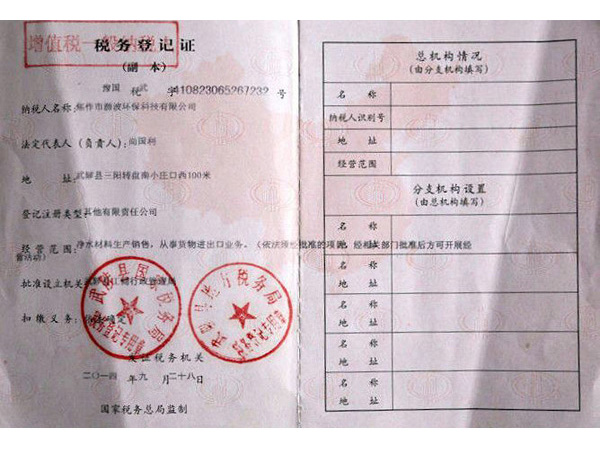 增值税一般纳税人
税务登记证
(副 本)
豫国 税 武 字410823065267232 号
纳税人名称:焦作市渤波环保科技有限公司
法定代表人(负责人):尚国利
地 址:武陟县三阳转盘南小庄口西100米
登记注册类型:其他有限责任公司
经营范围:净水材料生产销售,从事货物进出口业务。(依法须经批准的项目,经相关部门批准后方可开展经
营活动)
批准设立机关:武陟县工商行政管理局
扣缴义务:依法确定
发证税务机关
二〇一四 年 九 月 二十八 日
国家税务总局监制
武陟县国家税务局
税务登记专用章
武陟县地方税务局
税务登记专用章
总机构情况
(由分支机构填写)
名 称
纳税人识别号
地 址
经营范围
分支机构设置
(由总机构填写)
名 称
地 址
名 称
地 址
名 称
地 址
名 称
地 址
名 称
地 址